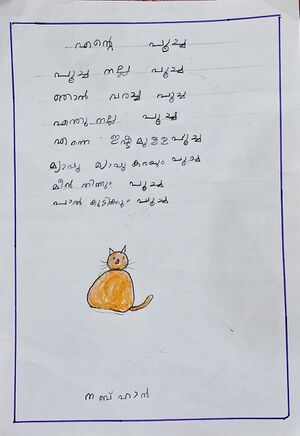 എന്റെ പൂച്ച
പൂച്ച നല്ല പൂച്ച
ഞാൻ വരച്ച പൂച്ച
എന്തു നല്ല പൂച്ച
എന്നെ ഇഷ്ടമുള്ള പൂച്ച
മ്യാവൂ മ്യാവൂ കരയും പൂച്ച
മീൻ തിന്നും പൂച്ച
പാൽ കുടിക്കും പൂച്ച
നബ്ഹാൻ